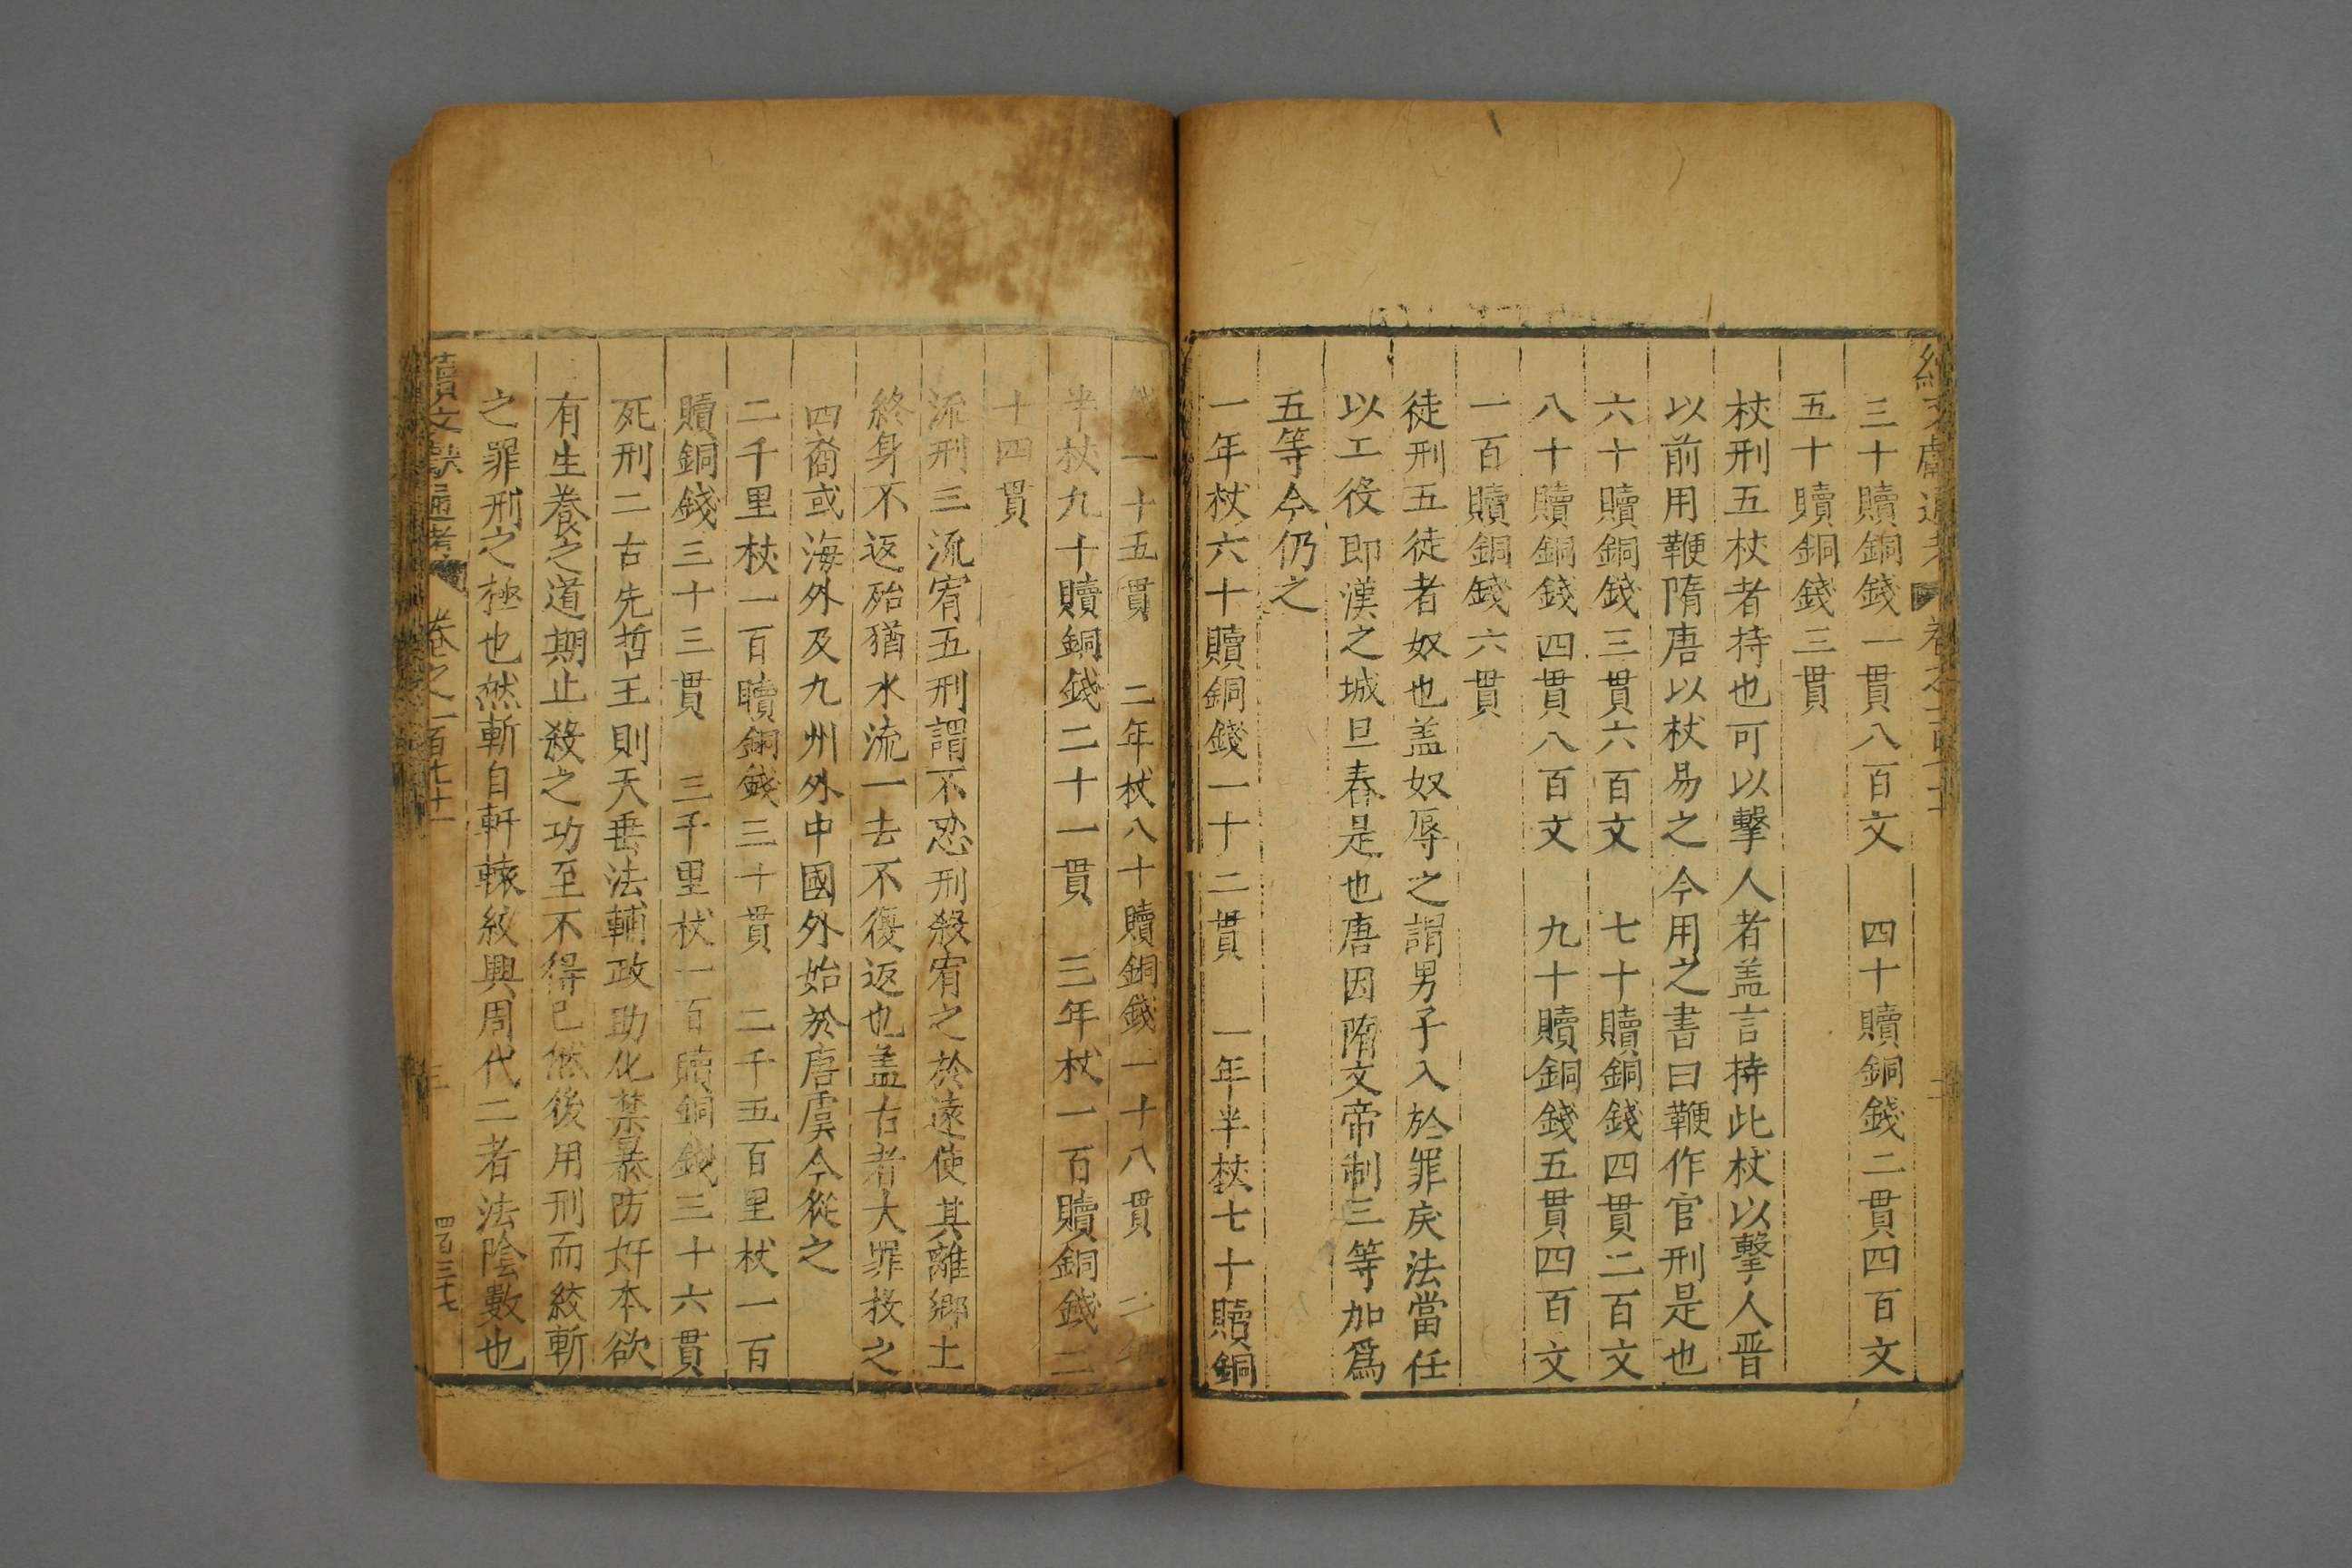 三十贖銅錢一貫八百文　四十贖銅錢二貫四百文
五十贖銅錢三貫
杖刑五杖者持也可以擊人者盖言持此杖以擊人晋
以前用鞭隋唐以杖易之今用之書曰鞭作官刑是也
六十贖銅錢三貫六百文　七十贖銅錢四貫二百文
八十贖銅錢四貫八百文　九十贖銅錢五貫四百文
一百贖銅錢六貫
徒刑五徒者奴也盖奴辱之謂男子入於罪戾法當任
以工役即漢之城旦舂是也唐因隋文帝制三等加爲
五等今仍之
一年杖六十贖銅錢一十二貫　一年半杖七十贖銅
錢一十五貫　二年杖八十贖銅錢一十八貫　二年
半杖九十贖銅錢二十一貫　三年杖一百贖銅錢二
十四貫
流刑三流宥五刑謂不忍刑殺宥之於遠使其離鄉土
終身不返殆猶水流一去不復返也盖古者大罪投之
四裔或海外及九州外中國外始於唐虞今從之
二千里杖一百贖銅錢三十貫　二千五百里杖一百
贖銅錢三十三貫　三千里杖一百贖銅錢三十六貫
死刑二古先哲王則天垂法輔政助化禁暴防奸本欲
有生養之道期止殺之功至不得已然後用刑而絞斬
之罪刑之極也然斬自軒轅絞興周代二者法陰數也
續文獻通考　卷之一百七十一　三　四百三十七